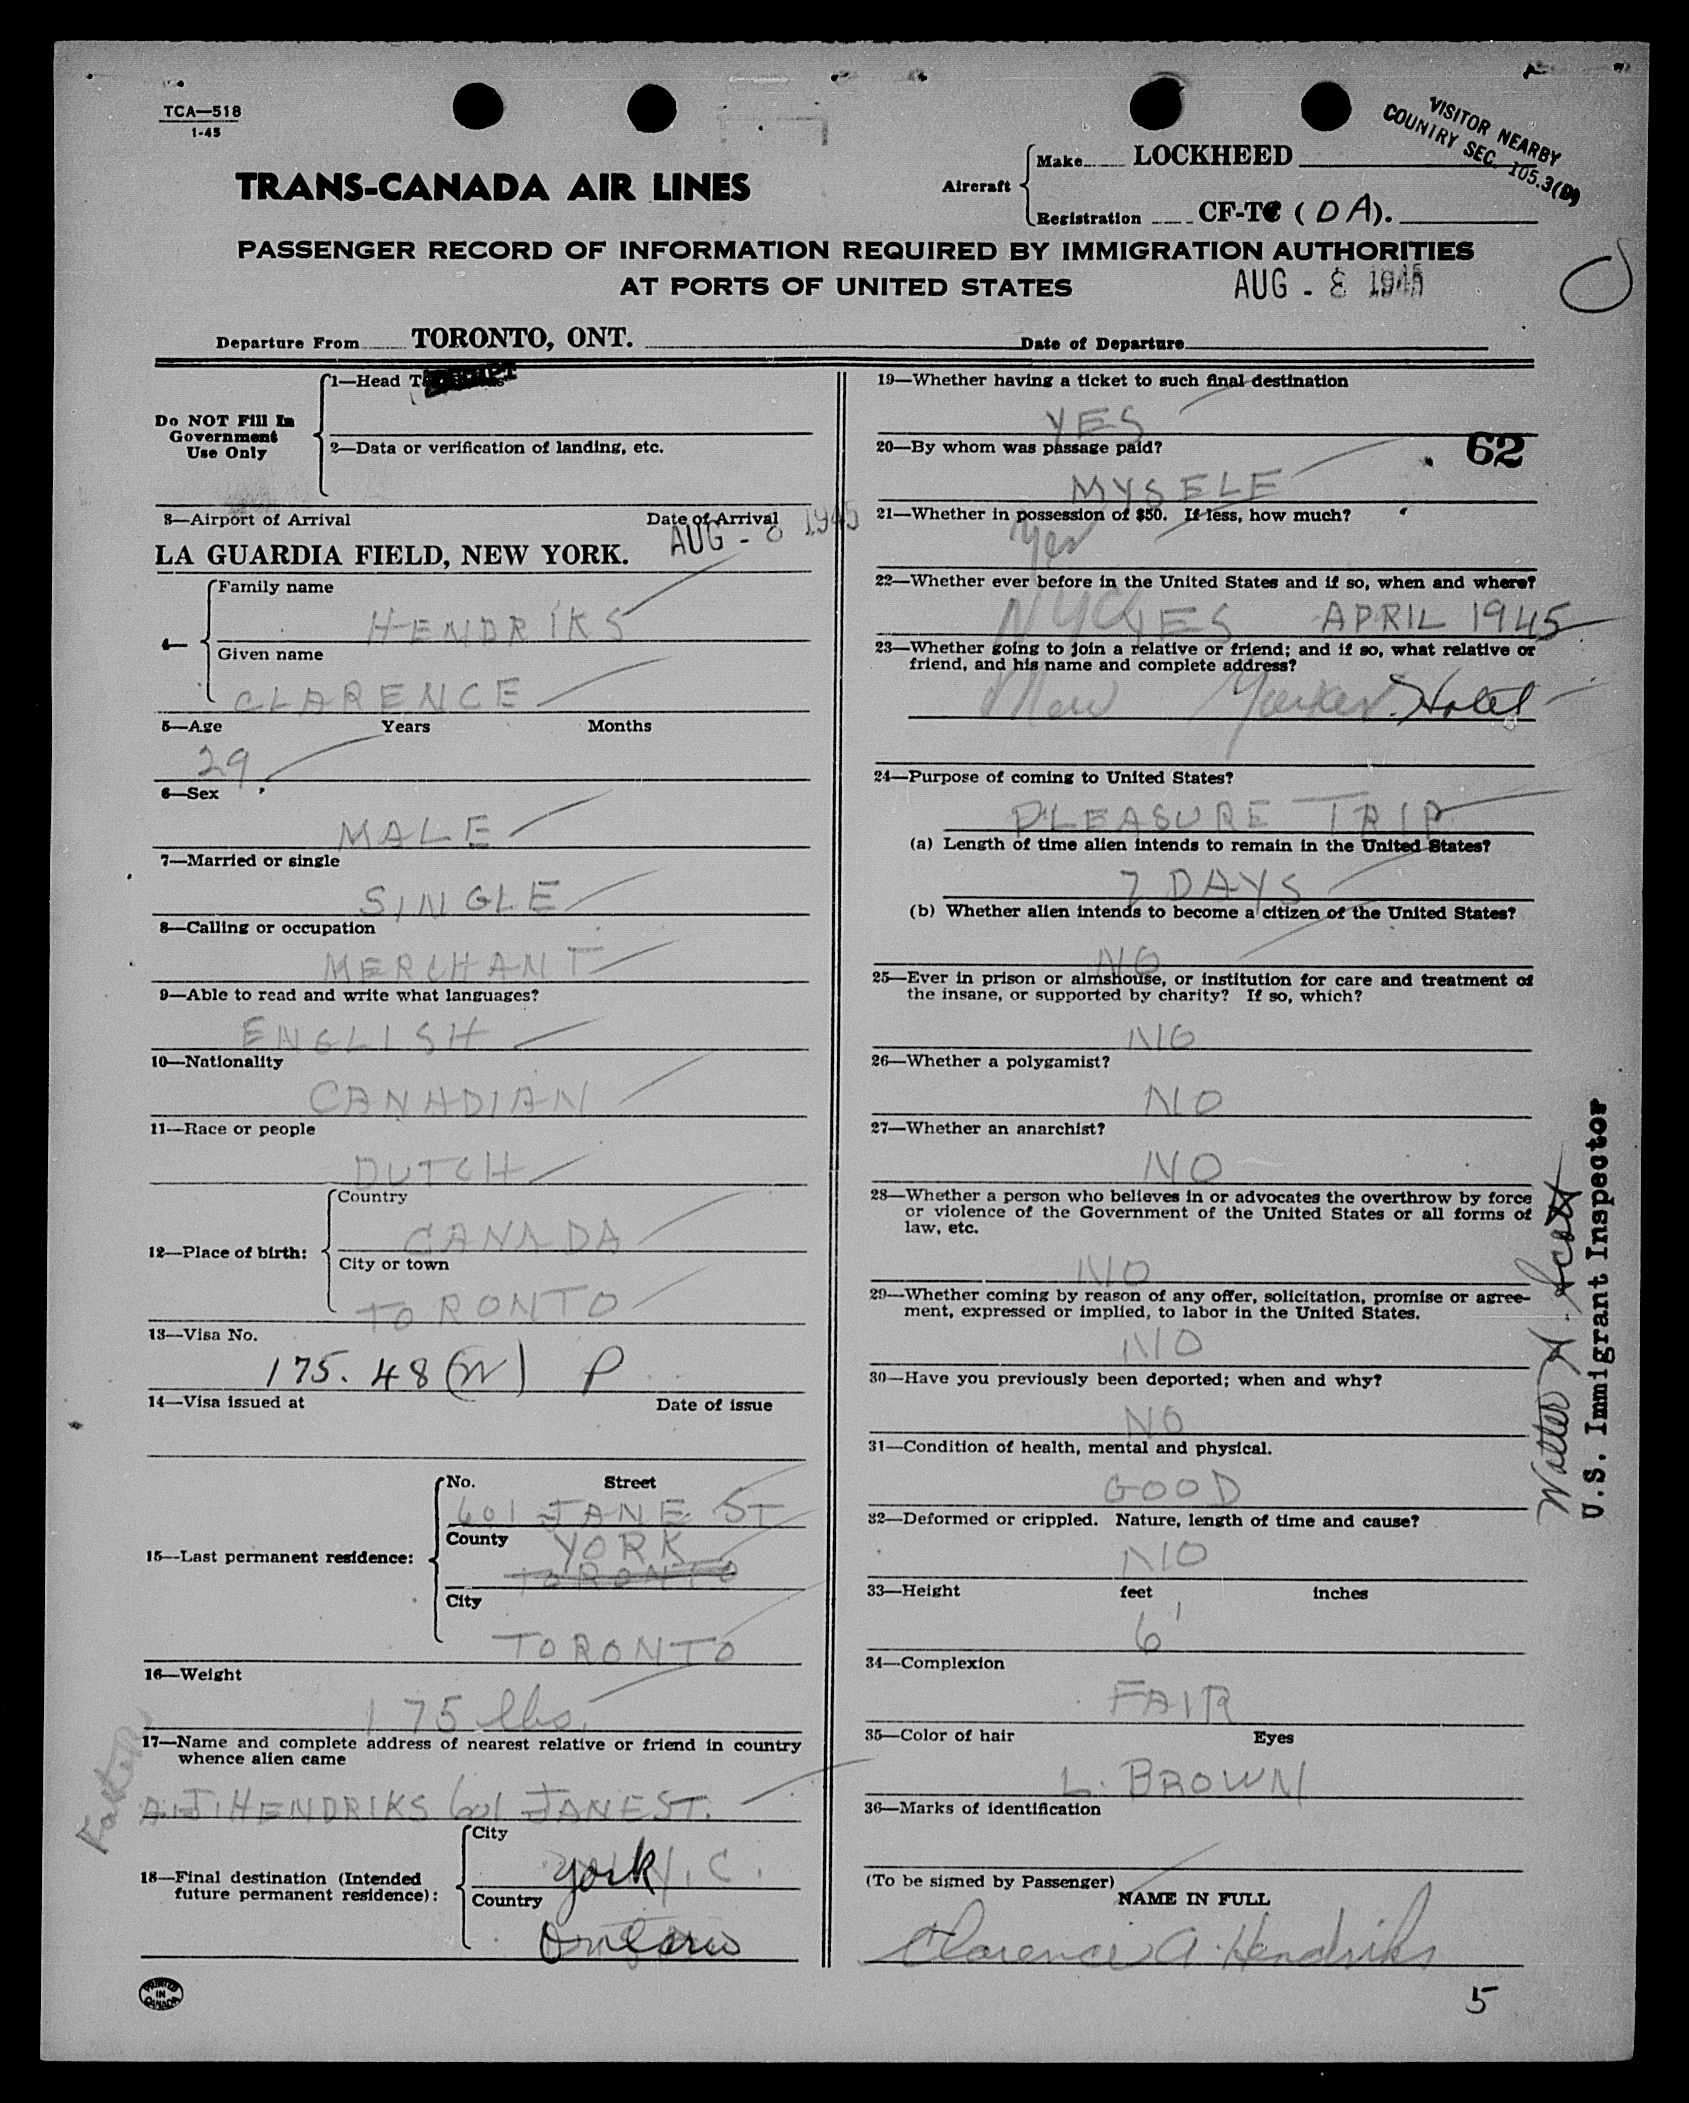 TCA—518
1-45
VISITOR NEARBY
COUNTRY SEC. 105.3(B)
Aircraft
Make LOCKHEED
Registration CF-TC (DA).
TRANS-CANADA AIR LINES
PASSENGER RECORD OF INFORMATION REQUIRED BY IMMIGRATION AUTHORITIES
AT PORTS OF UNITED STATES
AUG - 8 1945
Departure From TORONTO, ONT. Date of Departure
Do NOT Fill In
Government
Use Only
1—Head
2—Data or verification of landing, etc.
3—Airport of Arrival Date of Arrival
LA GUARDIA FIELD, NEW YORK. AUG - 8 1945
4—
Family name
HENDRIKS
Given name
CLARENCE
5—Age Years Months
29
6—Sex
MALE
7—Married or single
SINGLE
8—Calling or occupation
MERCHANT
9—Able to read and write what languages?
ENGLISH
10—Nationality
CANADIAN
11—Race or people
DUTCH
12—Place of birth:
Country
CANADA
City or town
TORONTO
13—Visa No.
175.48 (W) P
14—Visa issued at Date of issue
15—Last permanent residence:
No. Street
601 JANE ST
County YORK
TORONTO
City
TORONTO
16—Weight
175 lbs.
17—Name and complete address of nearest relative or friend in country
whence alien came
Father
A.J. HENDRIKS 601 JANE ST.
18—Final destination (Intended
future permanent residence):
City
York
Country
Ontario
PRINTED
IN
CANADA
19—Whether having a ticket to such final destination
YES
20—By whom was passage paid?
62
MYSELF
21—Whether in possession of $50. If less, how much?
Yes
22—Whether ever before in the United States and if so, when and where?
NYC YES APRIL 1945
23—Whether going to join a relative or friend; and if so, what relative or
friend, and his name and complete address?
New Yorker Hotel
24—Purpose of coming to United States?
PLEASURE TRIP
(a) Length of time alien intends to remain in the United States?
7 DAYS
(b) Whether alien intends to become a citizen of the United States?
NO
25—Ever in prison or almshouse, or institution for care and treatment of
the insane, or supported by charity? If so, which?
NO
26—Whether a polygamist?
NO
27—Whether an anarchist?
NO
28—Whether a person who believes in or advocates the overthrow by force
or violence of the Government of the United States or all forms of
law, etc.
NO
29—Whether coming by reason of any offer, solicitation, promise or agree-
ment, expressed or implied, to labor in the United States.
NO
30—Have you previously been deported; when and why?
NO
31—Condition of health, mental and physical.
GOOD
32—Deformed or crippled. Nature, length of time and cause?
NO
33—Height feet inches
6'
34—Complexion
FAIR
35—Color of hair Eyes
L. BROWN
36—Marks of identification
(To be signed by Passenger)
NAME IN FULL
Clarence A. Hendriks
5
Walter A. Scott
U.S. Immigrant Inspector